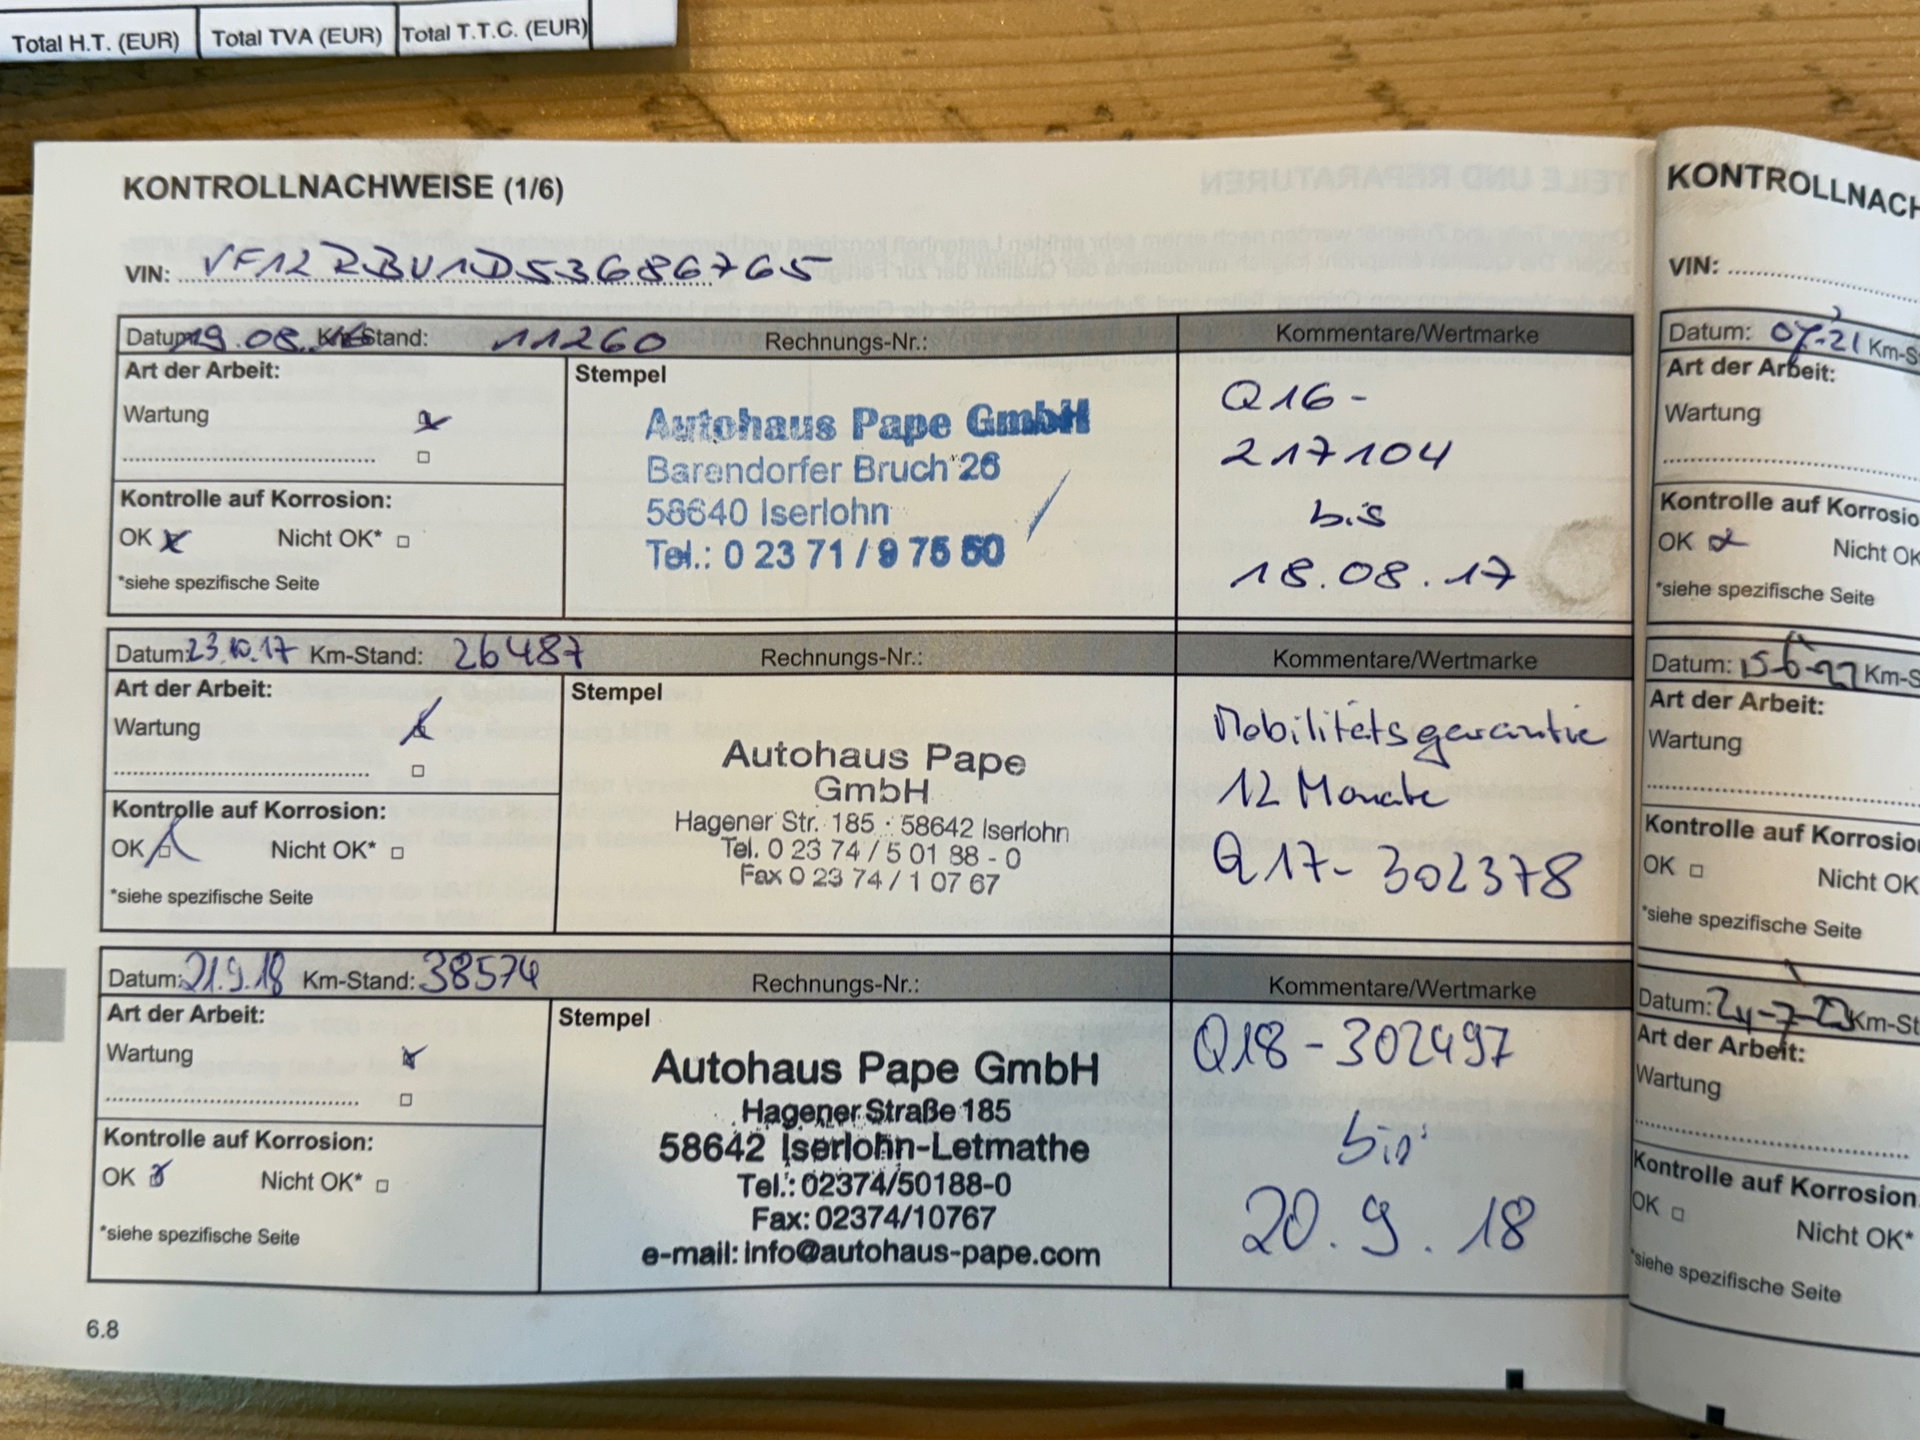 Total H.T. (EUR) Total TVA (EUR) Total T.T.C. (EUR)
KONTROLLNACHWEISE (1/6)
VIN: VF12RBU1D53686765
Datum: 19.08.16 Km-Stand: 11260 Rechnungs-Nr.: Kommentare/Wertmarke
Art der Arbeit: Stempel
Wartung
Kontrolle auf Korrosion:
OK Nicht OK*
*siehe spezifische Seite
Autohaus Pape GmbH
Barendorfer Bruch 26
58640 Iserlohn
Tel.: 0 23 71 / 9 75 50
Q16-
217104
bis
18.08.17
Datum: 23.10.17 Km-Stand: 26487 Rechnungs-Nr.: Kommentare/Wertmarke
Art der Arbeit: Stempel
Wartung
Kontrolle auf Korrosion:
OK Nicht OK*
*siehe spezifische Seite
Autohaus Pape
GmbH
Hagener Str. 185 · 58642 Iserlohn
Tel. 0 23 74 / 5 01 88 - 0
Fax 0 23 74 / 1 07 67
Mobilitätsgarantie
12 Monate
Q17-302378
Datum: 21.9.18 Km-Stand: 38574 Rechnungs-Nr.: Kommentare/Wertmarke
Art der Arbeit: Stempel
Wartung
Kontrolle auf Korrosion:
OK Nicht OK*
*siehe spezifische Seite
Autohaus Pape GmbH
Hagener Straße 185
58642 Iserlohn-Letmathe
Tel.: 02374/50188-0
Fax: 02374/10767
e-mail: info@autohaus-pape.com
Q18-302497
bis
20.9.18
6.8
KONTROLLNACH
VIN:
Datum: 07.21 Km-S
Art der Arbeit:
Wartung
Kontrolle auf Korrosio
OK Nicht OK
*siehe spezifische Seite
Datum: 15-6-22 Km-S
Art der Arbeit:
Wartung
Kontrolle auf Korrosio
OK Nicht OK
*siehe spezifische Seite
Datum: 24-7-23 Km-St
Art der Arbeit:
Wartung
Kontrolle auf Korrosion
OK Nicht OK*
*siehe spezifische Seite